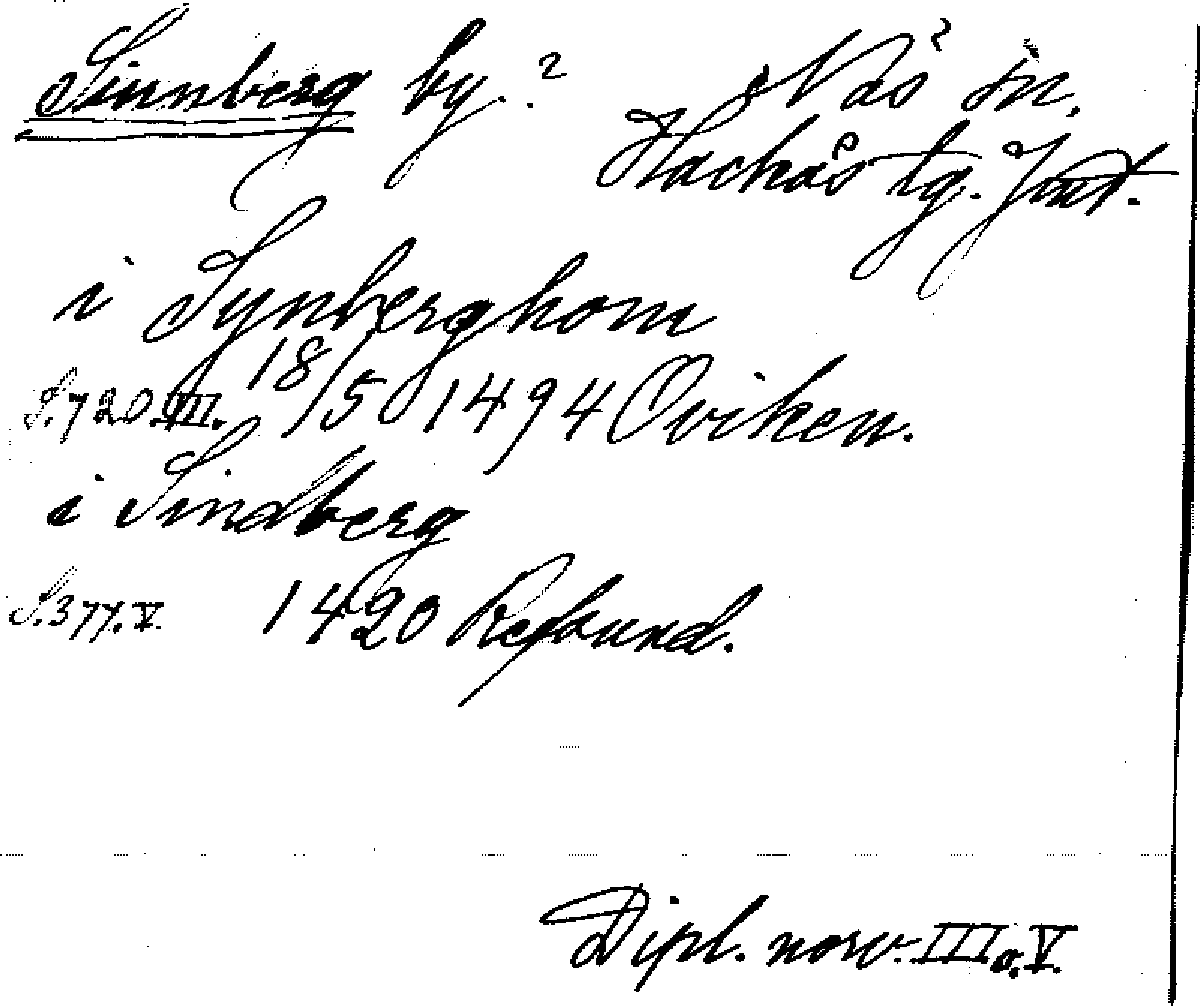 Sinnberg by.? Näs sn.
Hackås tg. Jmt.
i Synberghom
S.720.III. 18/5 1494 Oviken.
i Sindberg
S.377.V. 1420 Refsund.
Dipl. norv. III o. V.